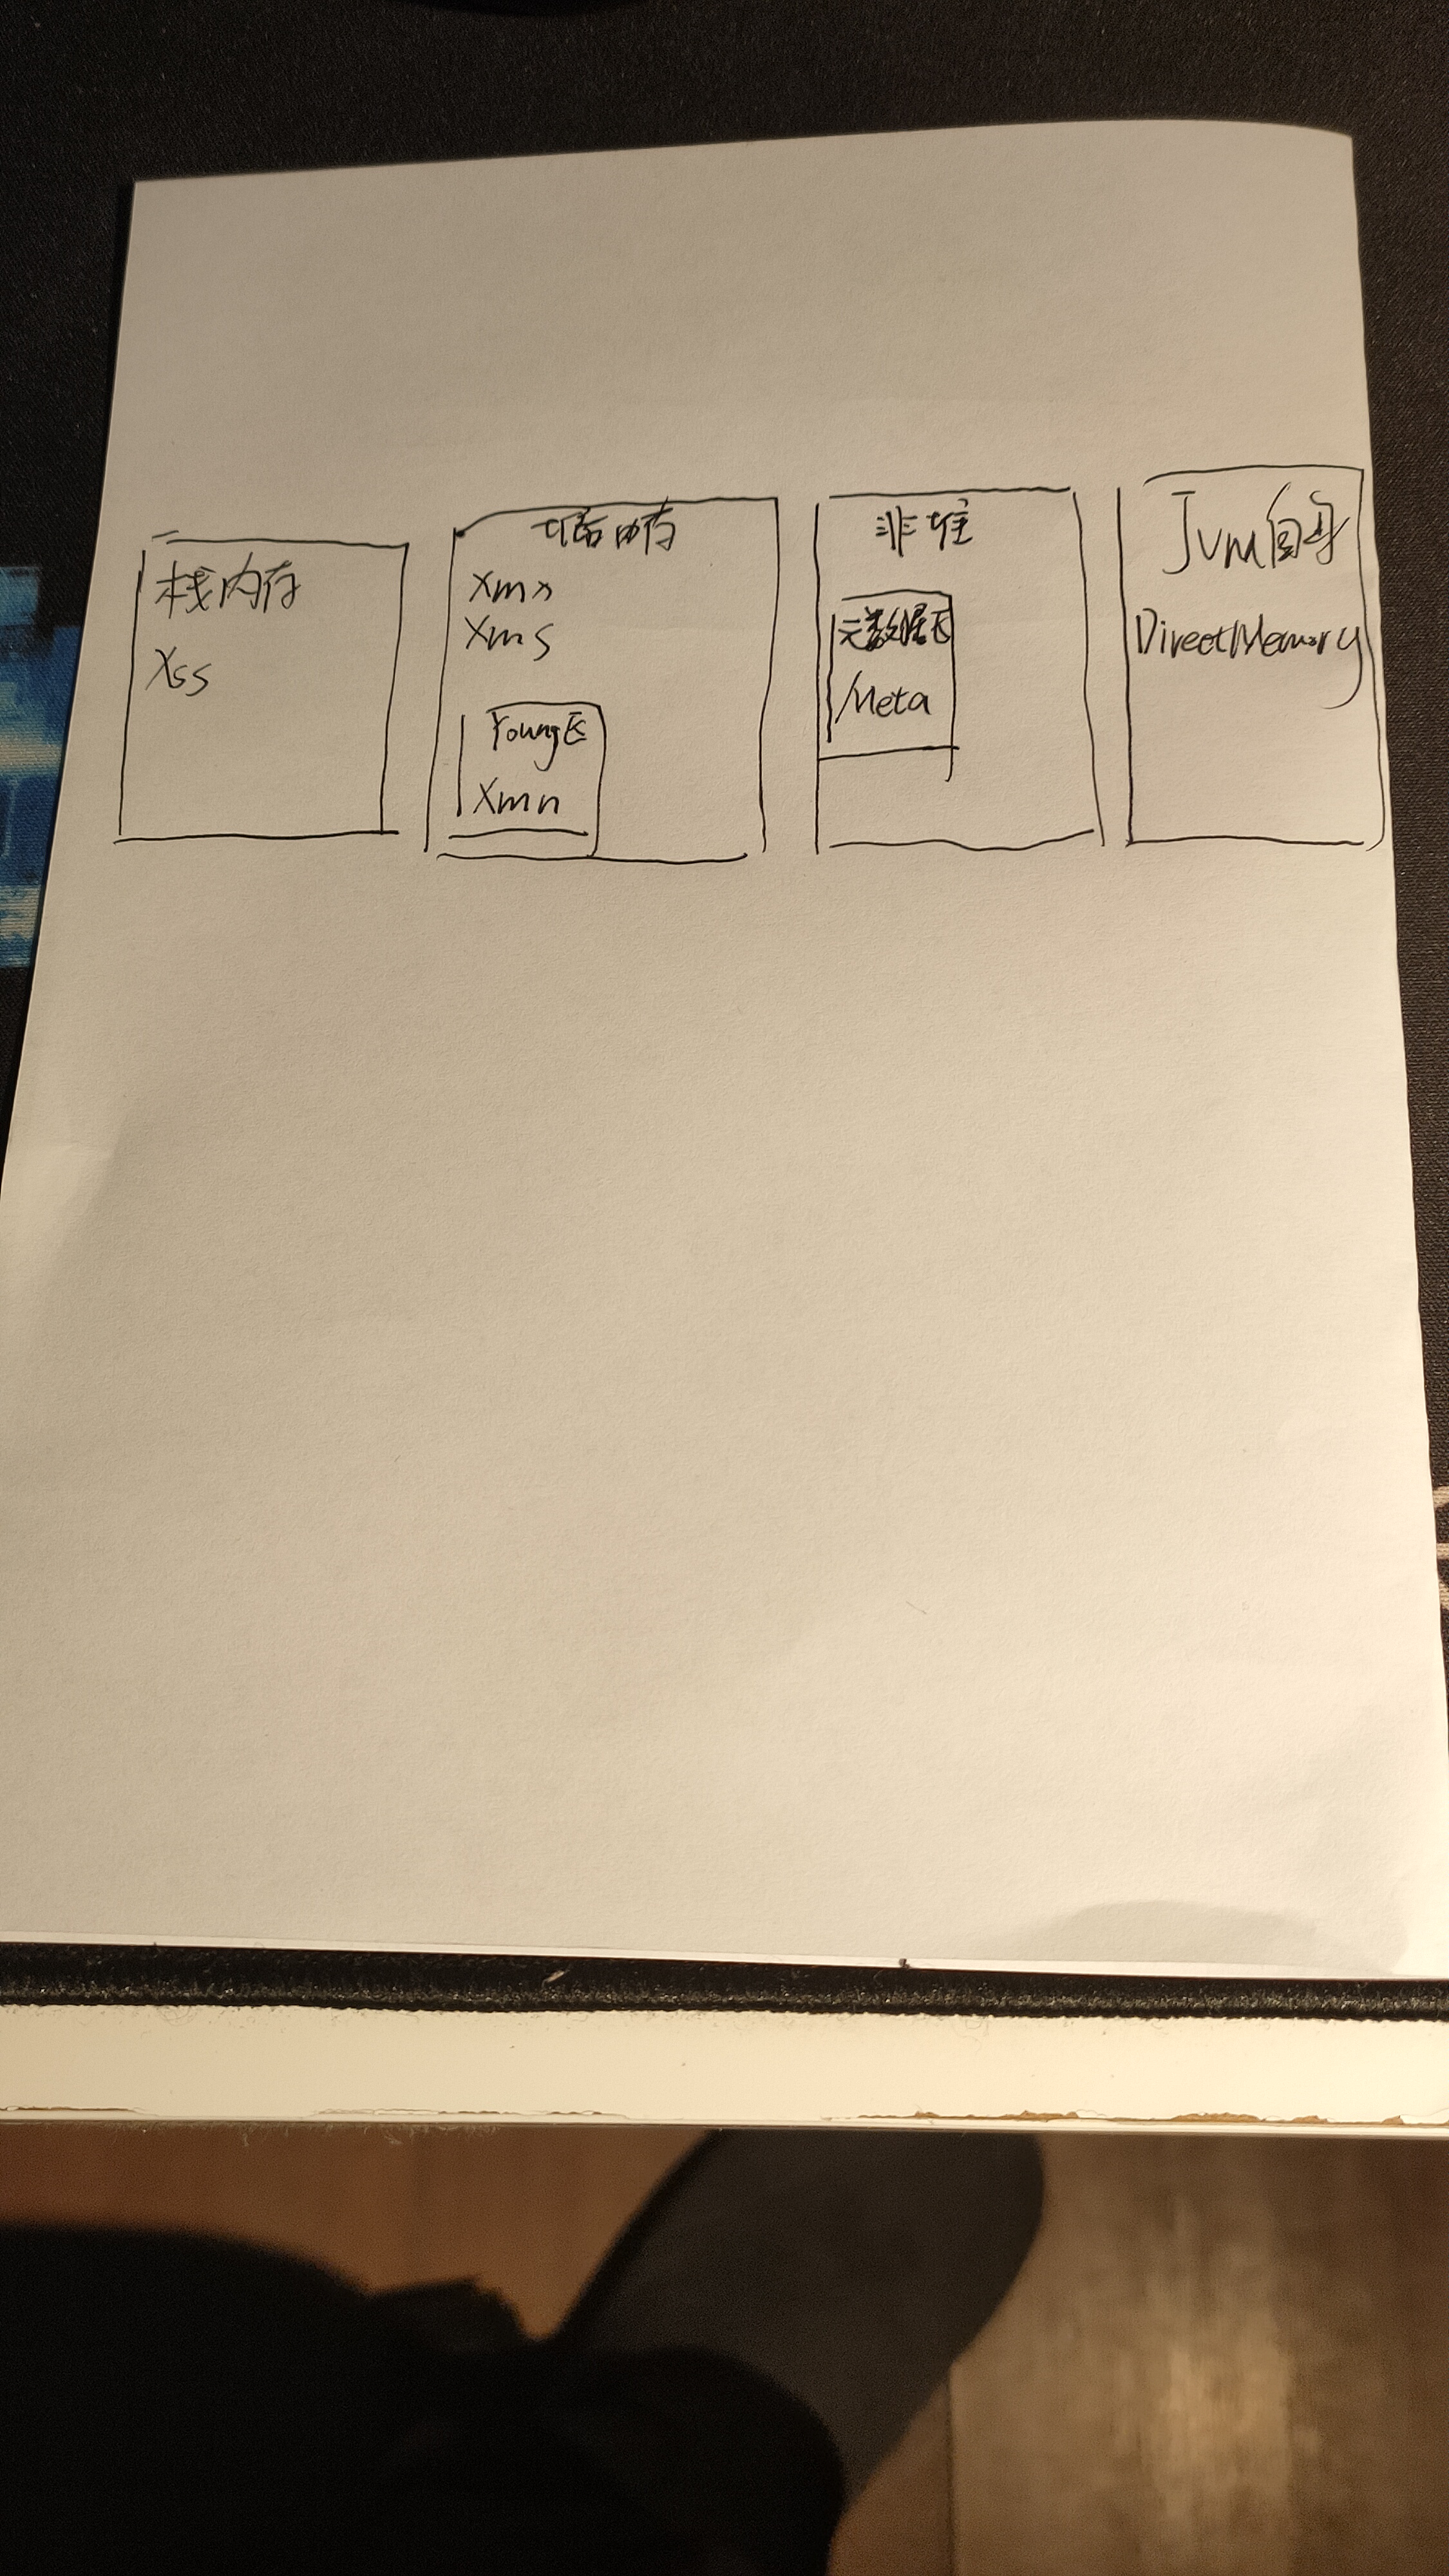 栈内存
Xss
堆内存
Xmx
Xms
Young区
Xmn
非堆
元数据区
Meta
Jvm自身
DirectMemory